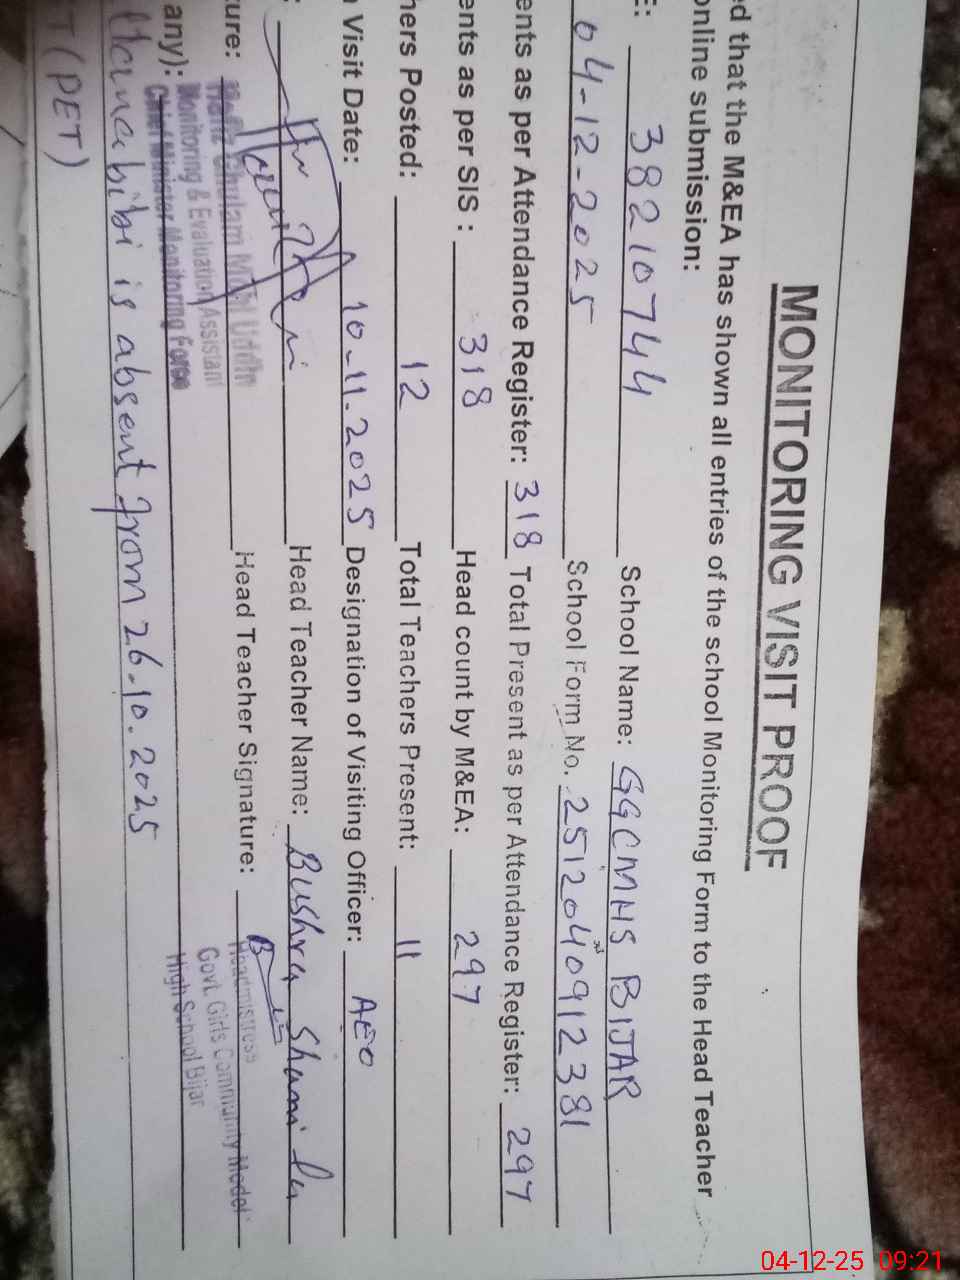 MONITORING VISIT PROOF
ed that the M&EA has shown all entries of the school Monitoring Form to the Head Teacher
online submission:
E: 38210744 School Name: GGCMHS BIJAR
04-12-2025 School Form No. 2512040912381
ents as per Attendance Register: 318 Total Present as per Attendance Register: 297
ents as per SIS : 318 Head count by M&EA: 297
hers Posted: 12 Total Teachers Present: 11
Visit Date: 10-11.2025 Designation of Visiting Officer: AEO
: Head Teacher Name: Bushra
ture: Head Teacher Signature:
Monitoring & Evaluation Assistant
Chief Minister Monitoring Force
Headmistress
Govt. Girls Community Model
High School Bijar
any):
bibi is absent from 26.10.2025
T (PET)
04-12-25 09:21